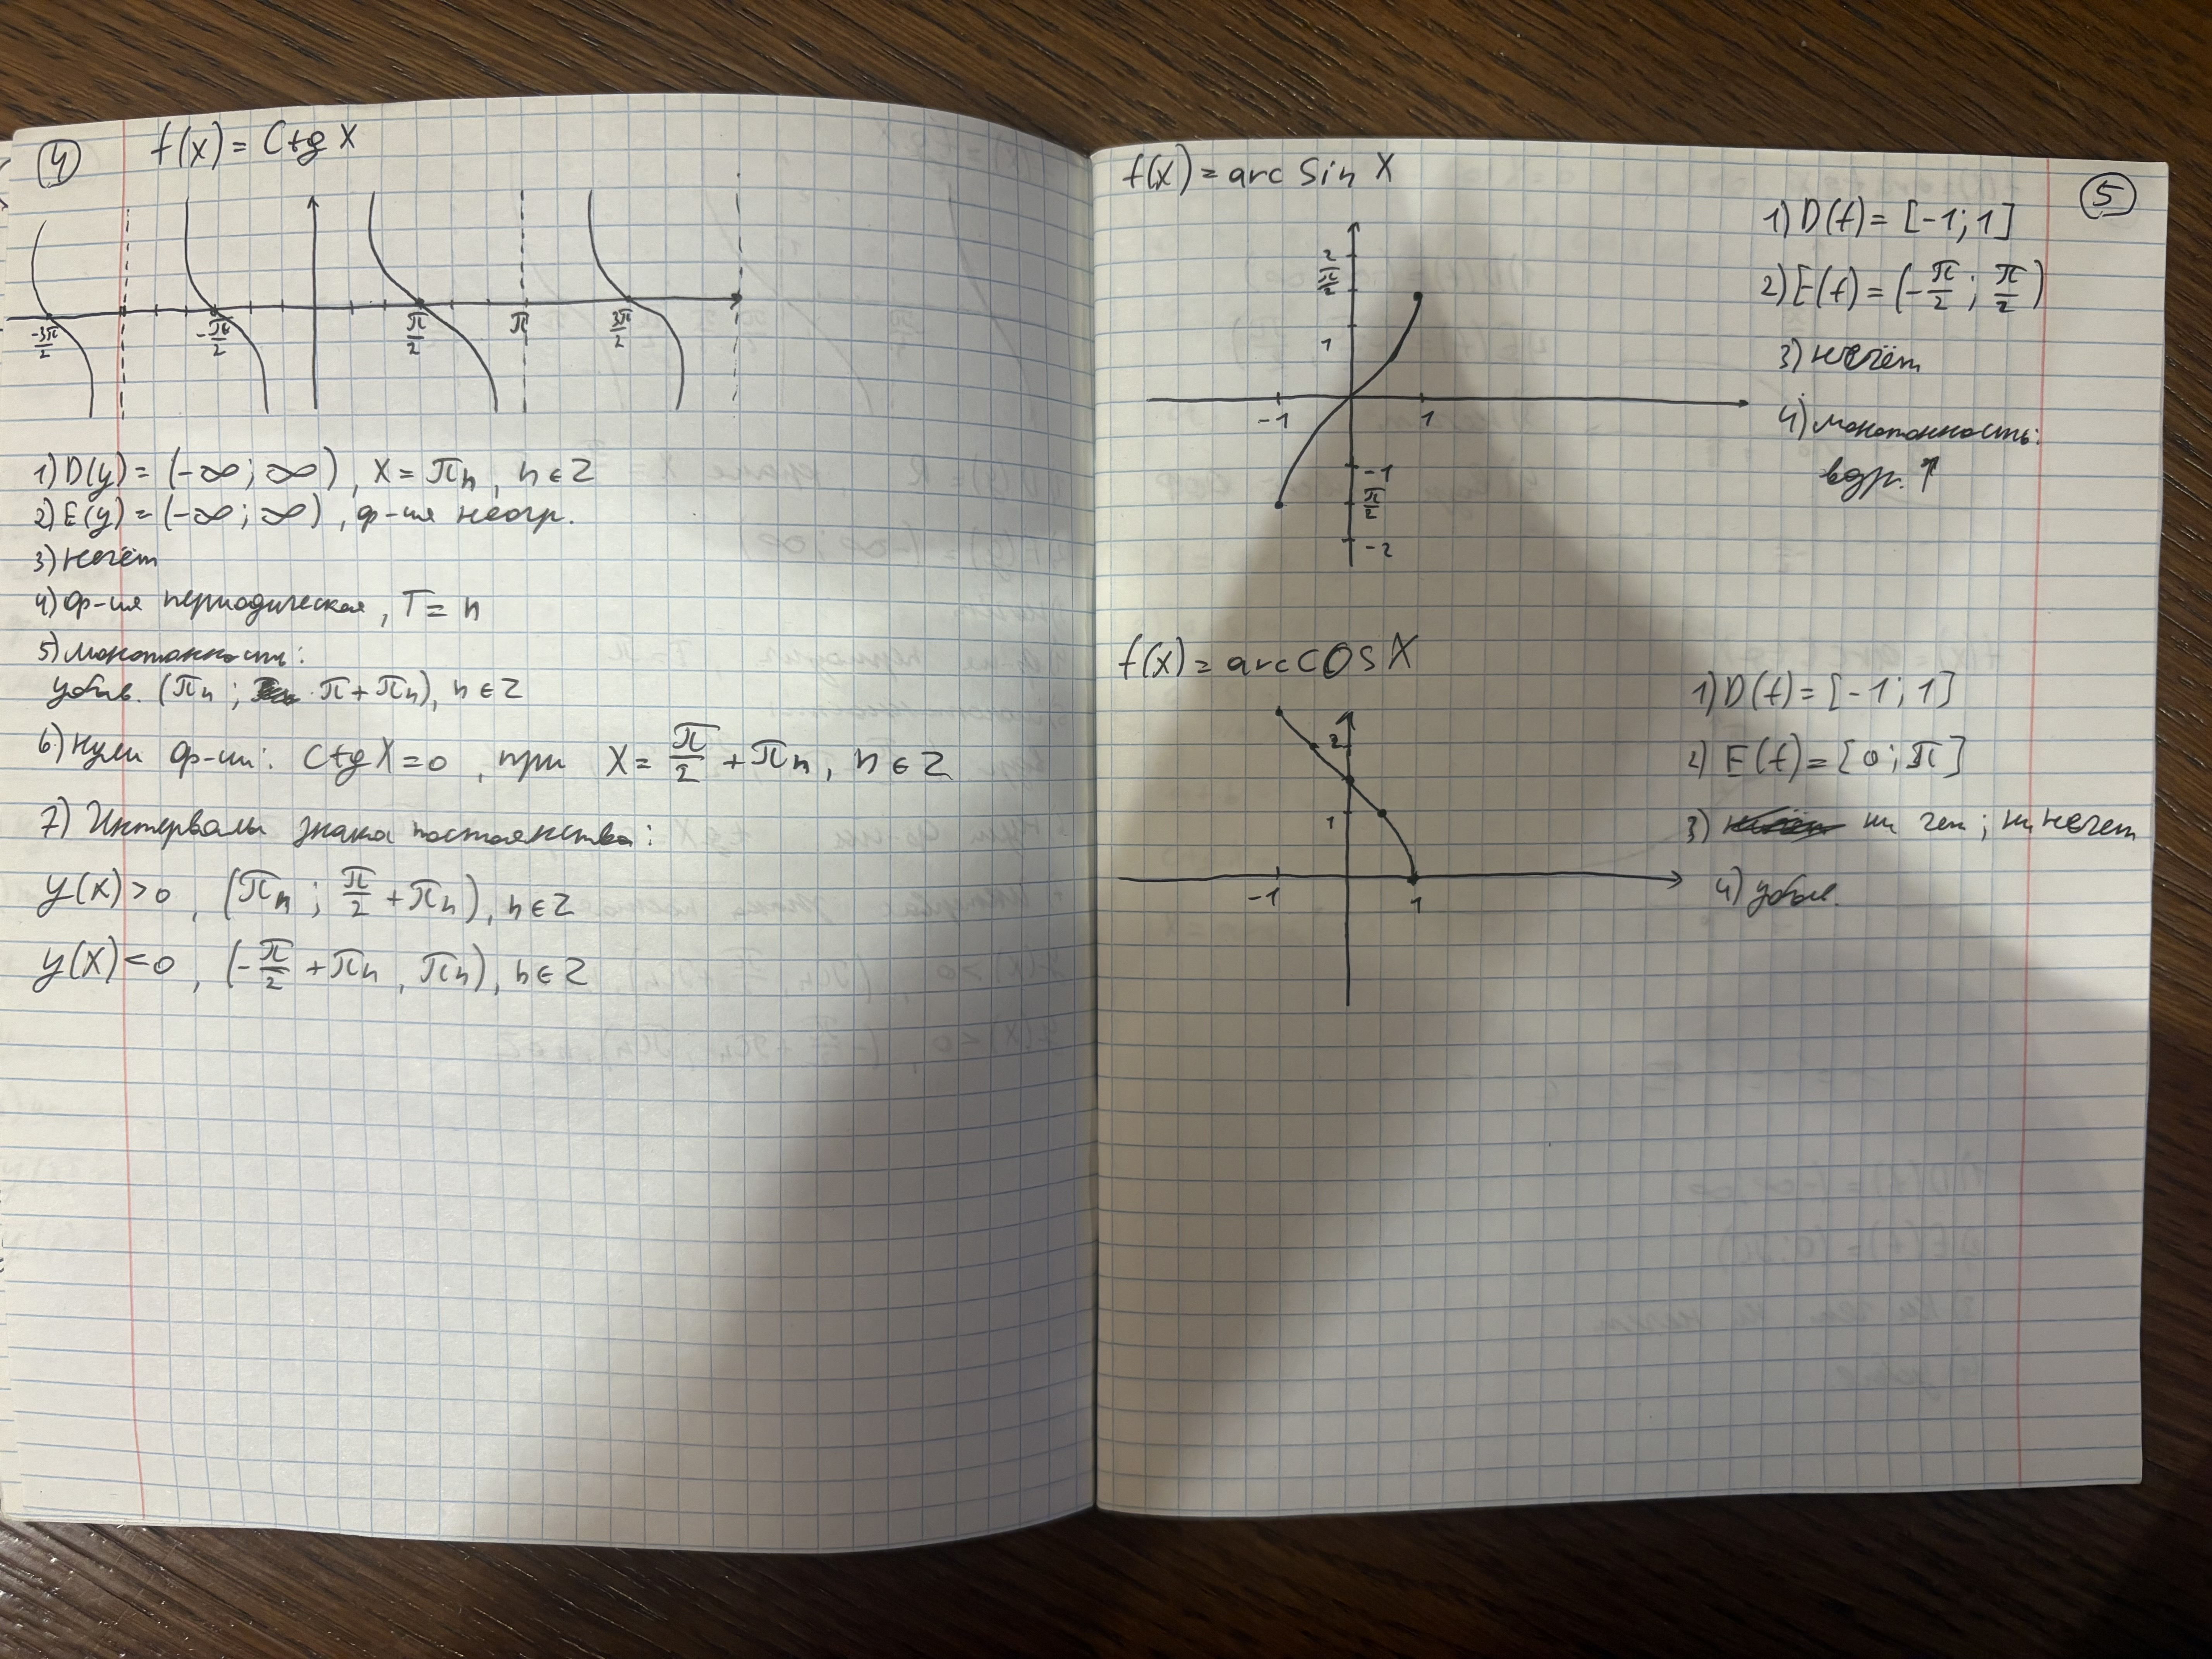 4
f(x) = Ctg x
-3π/2 -π/2 π/2 π 3π/2
1) D(y) = (-∞; ∞), x = πn, n ∈ Z
2) E(y) = (-∞; ∞), ф-ия неогр.
3) нечёт
4) ф-ия периодическая, T = n
5) монотонность:
убыв. (πn; π + πn), n ∈ Z
6) нули ф-ии: Ctg x = 0, при x = π/2 + πn, n ∈ Z
7) Интервалы знака постоянства:
y(x) > 0, (πn; π/2 + πn), n ∈ Z
y(x) < 0, (-π/2 + πn, πn), n ∈ Z
5
f(x) = arc Sin x
2
π/2
1
-1 1
-1
π/2
-2
1) D(f) = [-1; 1]
2) E(f) = (-π/2; π/2)
3) нечёт
4) монотонность:
возр. ↑
f(x) = arc COS x
2
1
-1 1
1) D(f) = [-1; 1]
2) E(f) = [0; π]
3) ни чет; ни нечет
4) убыв.